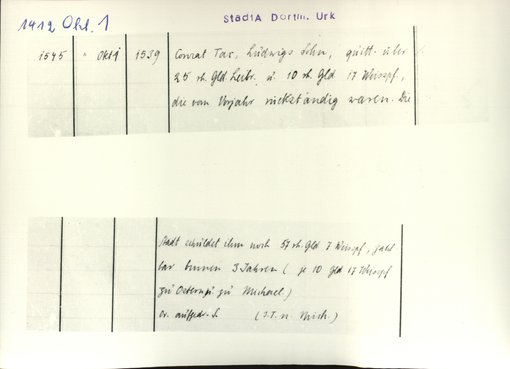 1412 Okt. 1
StadtA Dortm. Urk
1545 " Okt 1 1539 Conrat Tac, Ludwigs Sohn, quitt. über
25 rh. Gld Leibr. u. 10 rh. Gld 17 Weisspf,
die vom Vorjahr rückständig waren. Die
Stadt schuldet ihm noch 57 rh. Gld 7 Weisspf, zahl
bar binnen 3 Jahren ( je 10 Gld 17 Weisspf
zu Ostern u. zu Michael.)
Or. aufgedr. S. (J. T. n. Mich.)